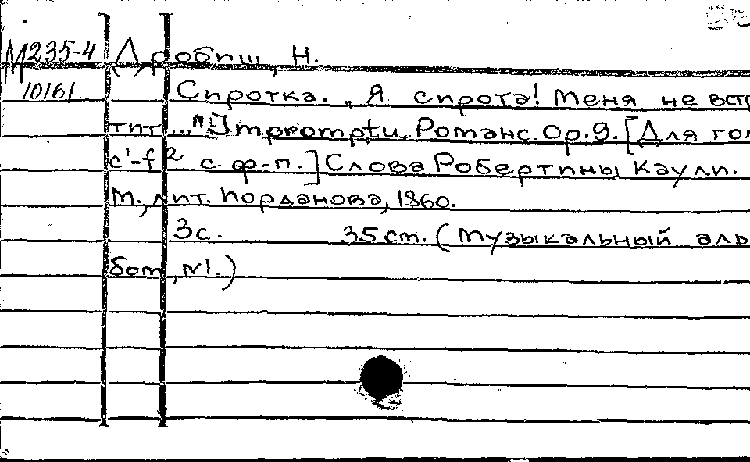 М235-4 Дробиш, Н.
10161 Сиротка. „Я сирота! Меня не встр
тит..." Impromptu. Романс. Ор.9. [Для гол
c¹-f² с ф.-п.] Слова Робертины Каули.
М., лит. Иорданова, 1860.
3с. 35 cm. (Музыкальный аль
бом, №1.)